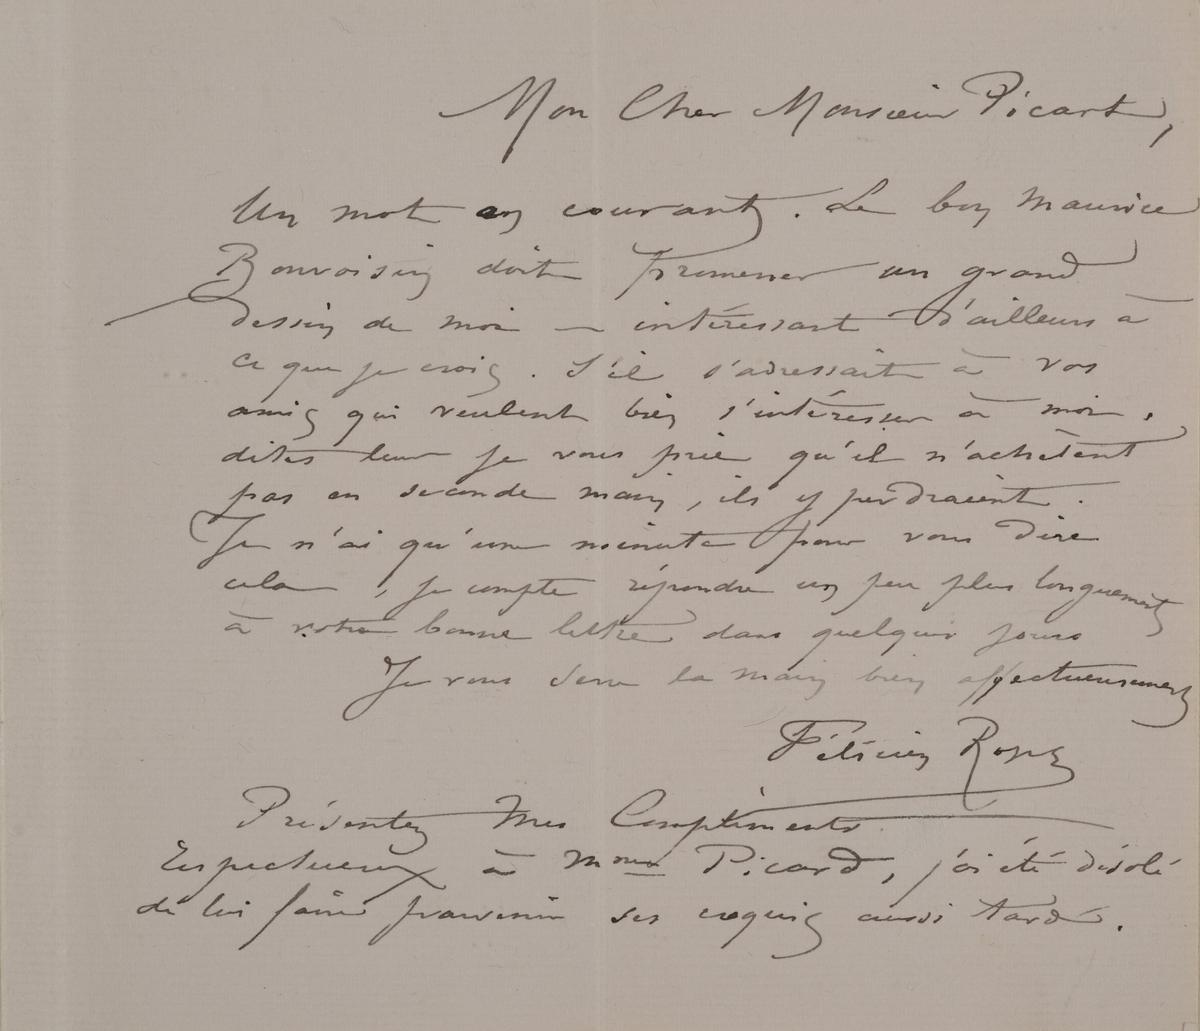 Mon Cher Monsieur Picart,
Un mot en courant. Le bon Maurice
Bonvoisin doit promener un grand
dessin de moi — intéressant d'ailleurs à
ce que je crois. S'il s'adressait à vos
amis qui veulent bien s'intéresser à moi,
dites leur je vous prie qu'il n'achètent
pas en seconde main, ils y perdraient.
Je n'ai qu'une minute pour vous dire
cela, je compte répondre un peu plus longuement
à votre bonne lettre dans quelques jours
Je vous serre la main bien affectueusement
Félicien Rops
Présentez Mes Compliments
Respectueux à Mme Picard, j'ai été désolé
de lui faire parvenir ses croquis aussi tard.